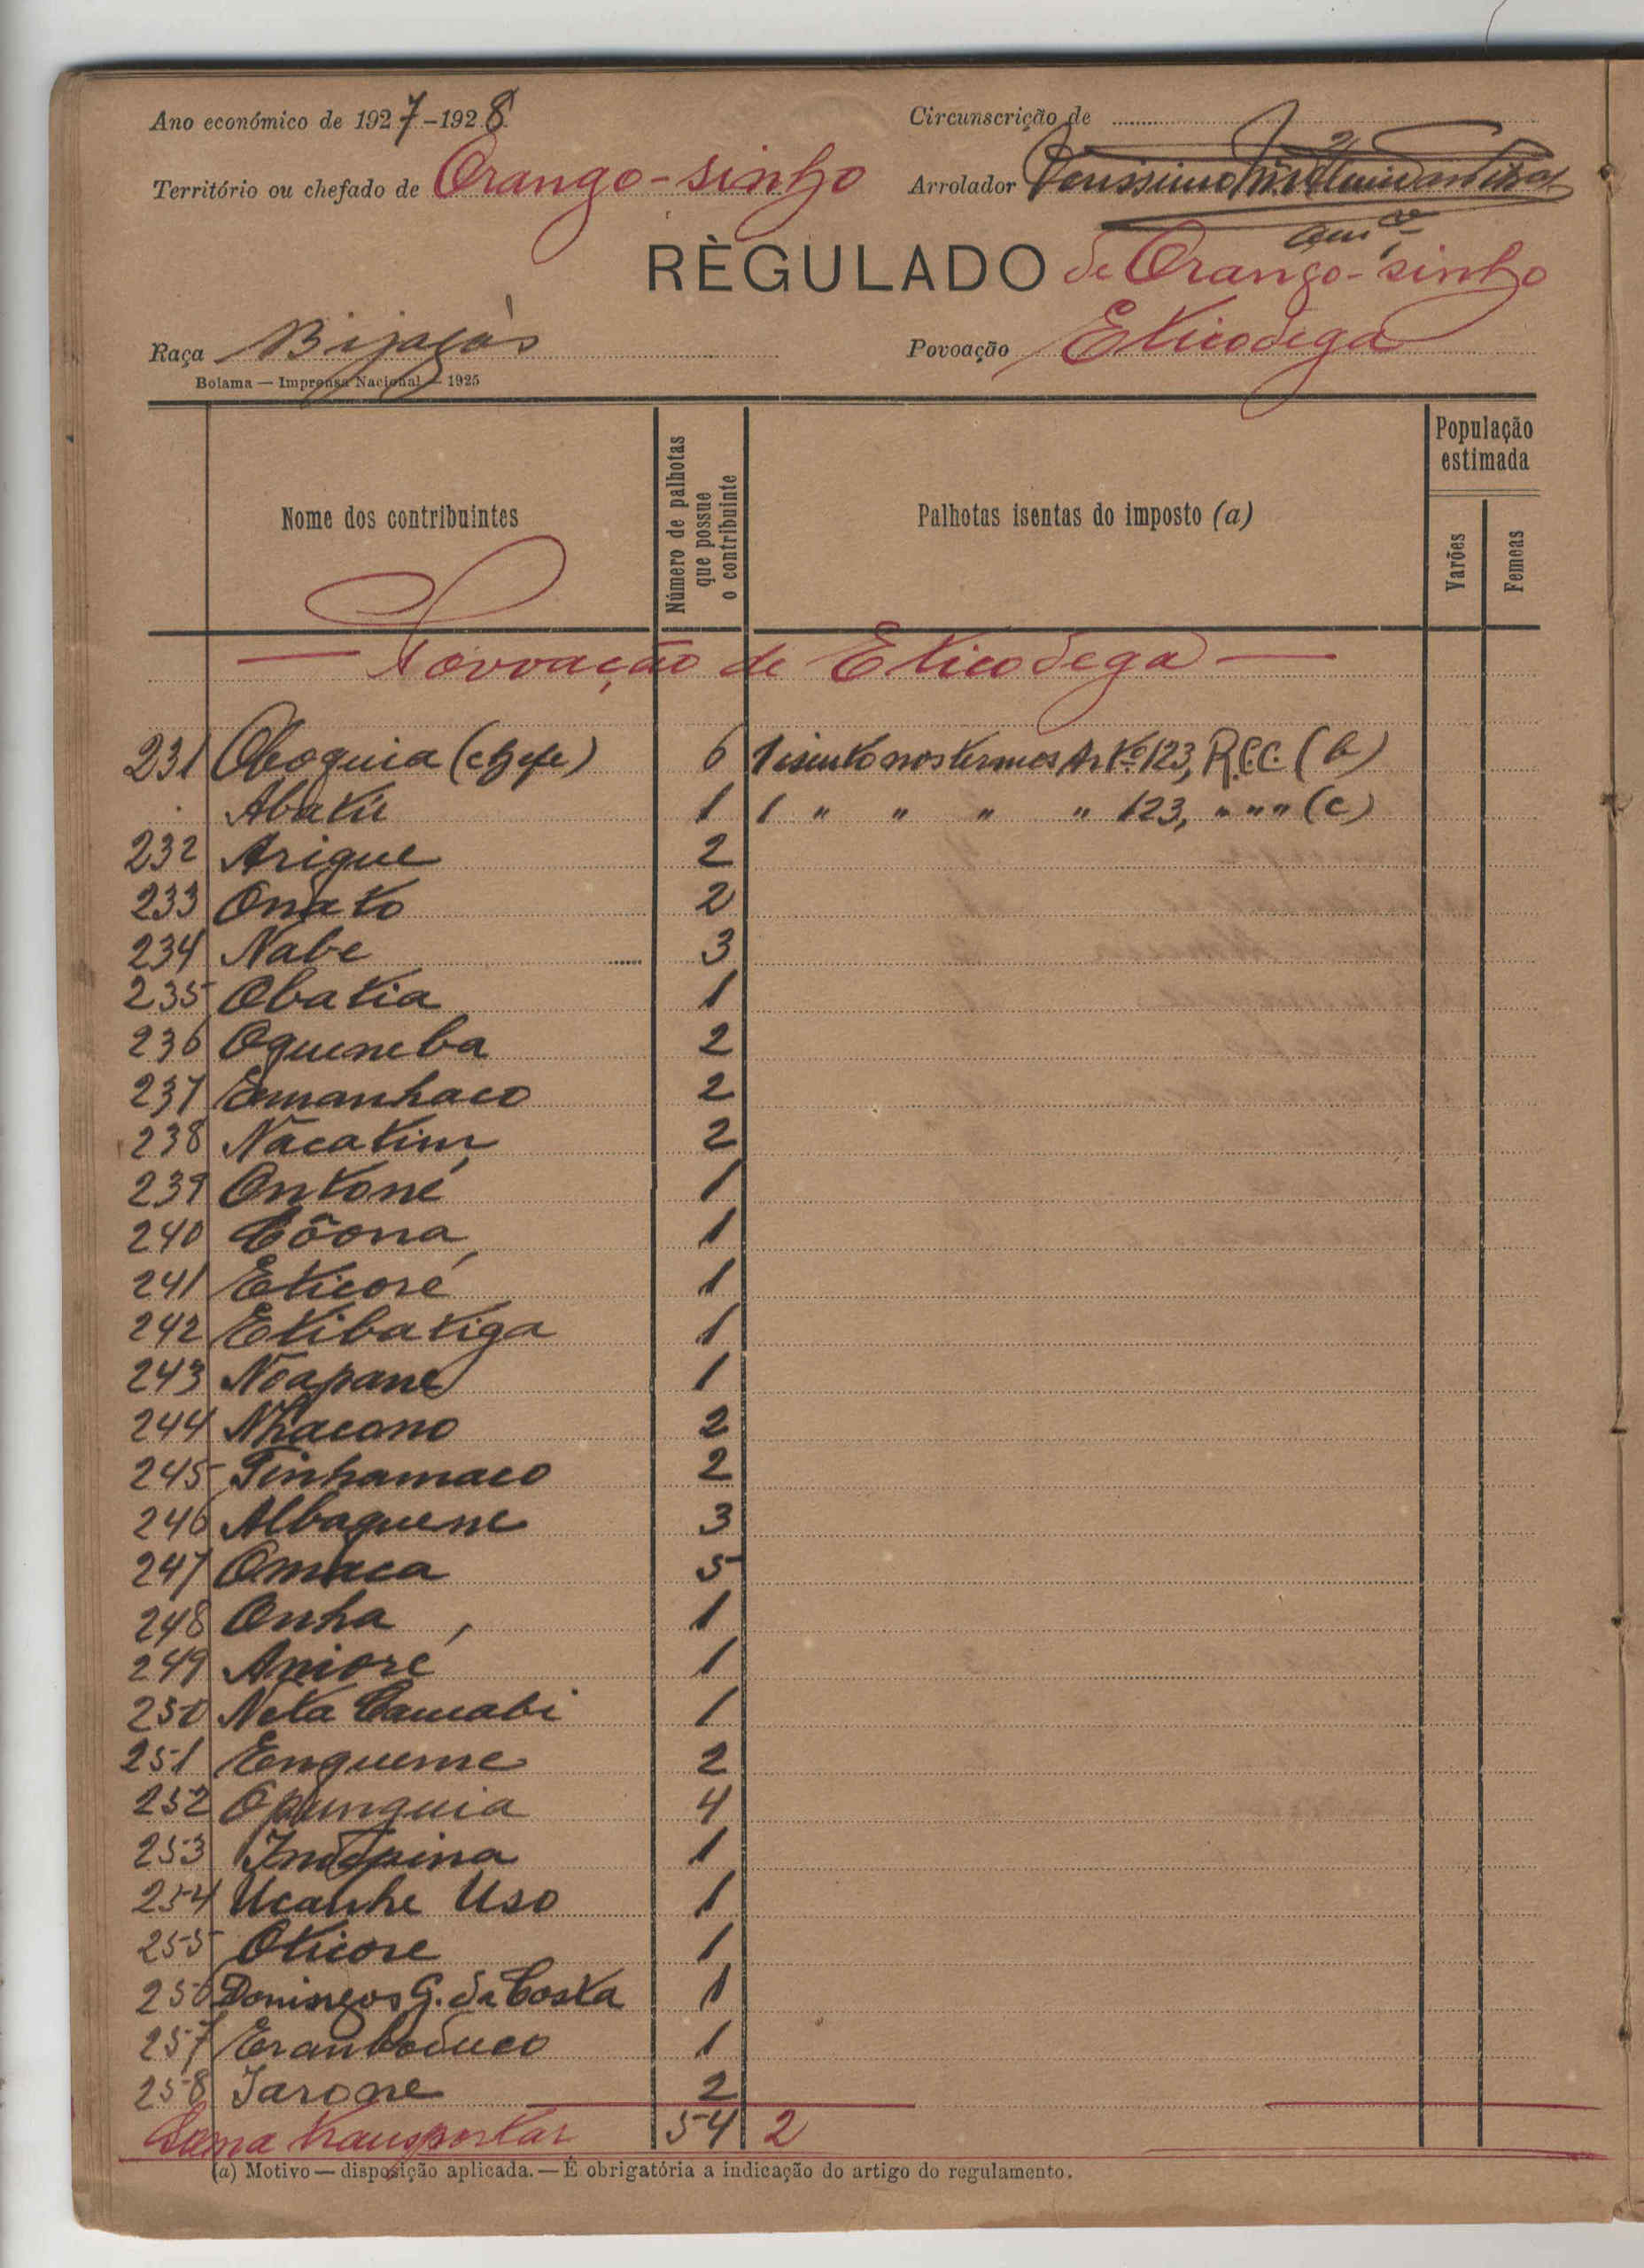 Ano económico de 1927-1928
Circunscrição de
Território ou chefado de Orango-sinho
Arrolador
RÈGULADO de Orango-sinho
Raça Bijagós
Povoação Eticodega
Bolama — Imprensa Nacional — 1925
Nome dos contribuintes
Número de palhotas que possue o contribuinte
Palhotas isentas do imposto (a)
População estimada
Varões
Femeas
— Povoação de Eticodega —
231 Oboquia (chefe) 6 1 isento nos termos Artº 123, R.C.C. (b)
Abatú 1 1 " " " " 123, " " " (c)
232 Arigue 2
233 Onato 2
234 Nabe 3
235 Obatia 1
236 Ogueneba 2
237 Emanhaco 2
238 Nacatim 2
239 Ontoné 1
240 Côona 1
241 Eticoré 1
242 Etibatiga 1
243 Noapane 1
244 Nhacono 2
245 Tinhamaco 2
246 Albaquene 3
247 Omaca 5
248 Onha 1
249 Anioré 1
250 Neta Camabi 1
251 Engueme 2
252 Opunguia 4
253 Indopina 1
254 Ucanhe Uso 1
255 Oticore 1
256 Domingos G. da Costa 1
257 Eranboduco 1
258 Jarone 2
Soma transportar 54 2
(a) Motivo — disposição aplicada. — É obrigatória a indicação do artigo do regulamento.